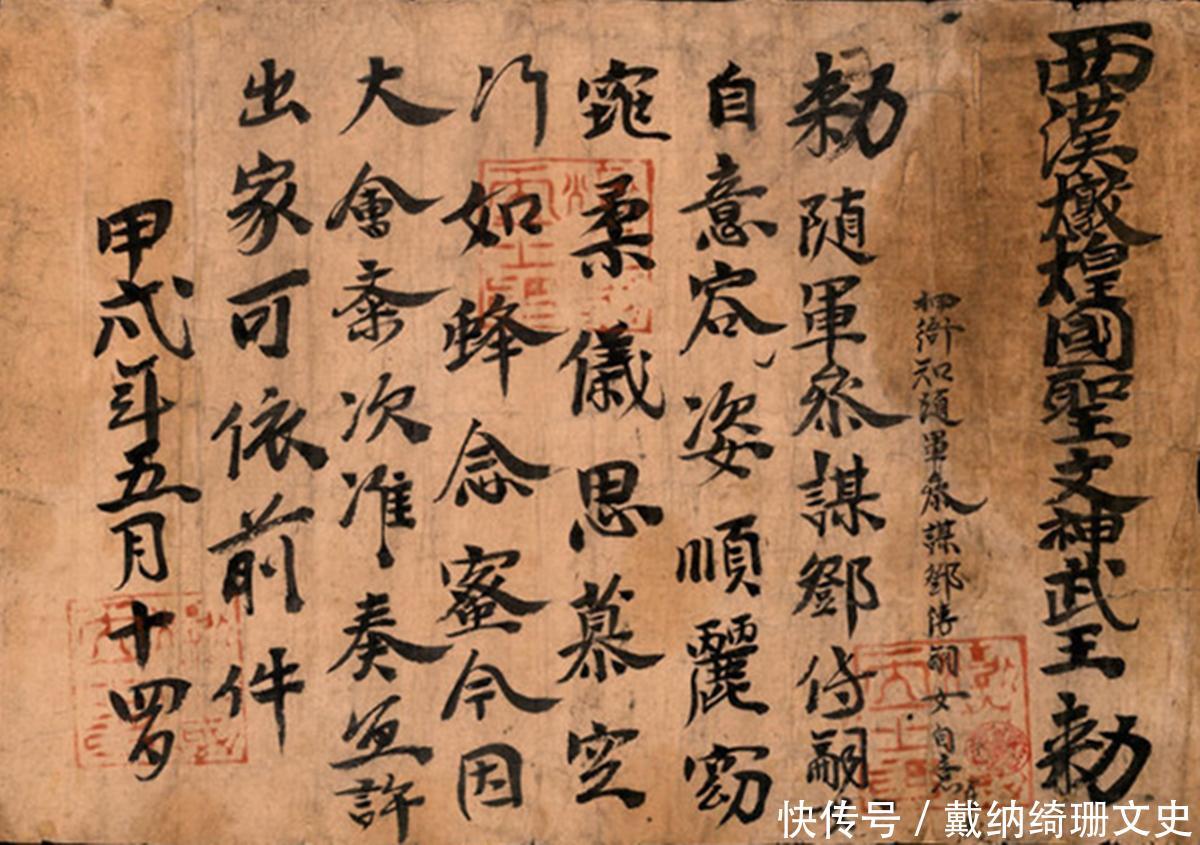 西漢燉煌國聖文神武王勅
押衙知随軍叅謀鄧傳嗣女自意
勅随軍叅謀鄧傳嗣女
自意容姿順麗窈
窕柔儀思慕空
門如蜂念蜜今因
大會齋次准奏宜許
出家可依前件
甲戌年五月十四日
快传号 / 戴纳绮珊文史